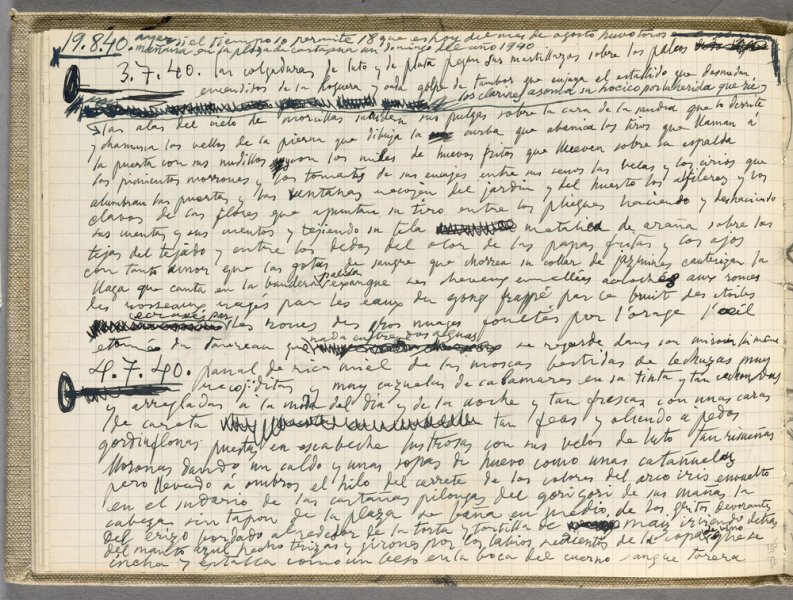 19.8.40. ayer si el tiempo lo permite 18 que es hoy del mes de agosto hubo toros
mañana en la plaza de cartagena un domingo del año 1940
3.7.40. las colgaduras de luto y de plata pegan sus martillazos sobre los palos
encendidos de la hoguera y cada golpe de tambor que enjuga el estallido que desnudan
los clarines asoma su hocico por la herida que ríe
las alas del cielo de morcillas sus pulgas sobre la cara de la sandia que lo derrite
y chamusca los vellos de la pierna que dibuja la curva que abanica los tiros que llaman á
la puerta con sus nudillos y con los miles de huevos fritos que llueven sobre su espalda
los pimientos morrones y los tomates de sus encajes entre sus senos las velas y los cirios que
alumbran las puertas y las ventanas recojen del jardin y del huerto los alfileres y los
clavos de las flores que apuntan su tiro entre los pliegues haciendo y deshaciendo
sus cuentas y sus cuentos y tejiendo su tela metalica de araña sobre las
tejas del tejado y entre los dedos del olor de las papas fritas y los ajos
con tanto amor que las gotas de sangre que chorrea su collar de jazmines cauterizan la
llaga que canta en la bandera palida les cheveux accrochés aux ronces
des roseaux par les eaux du gong frappé par le bruit des étoiles
écrasées par les ronces des gros nuages fouettés par l'orage l'oeil
etonnée du taureau que nada cubre dos aguas se regarde dans son miroir
4.7.40. panal de rica miel de las moscas vestidas de lechugas muy
recojiditas y muy cazuelas de calamares en su tinta y tan
y arregladas á la moda del dia y de la noche y tan frescas con unas caras
de careta tan feas y oliendo a pedos
gordinflonas puestas en escabeche lustrosas con sus velos de luto tan risueñas
lloronas dando un caldo y unas sopas de huevo como unas castañuelas
pero llevando a ombros el hilo del carrete de los colores del arco iris envuelto
en el sudario de las castañas pilongas del gorigori de sus manos la
cabeza sin tapon de la plaza se baña en medio de los gestos devorantes
del erizo bordado al rededor de la torta y tortilla de maiz irviendo detras
del manto azul hecho trizas y girones por los labios sedientos de la copa de vino que se
incha y estalla como un beso en la boca del cuerno sangre torera